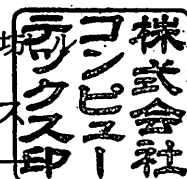 株式会社
コンピュー
テックス印